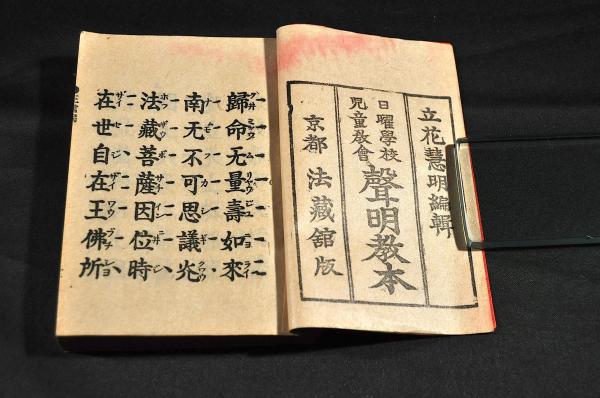 立花慧明編輯
日曜學校
兒童教會
聲明教本
京都 法藏舘版
歸命无量壽如來
南无不可思議光
法藏菩薩因位時
在世自在王佛所